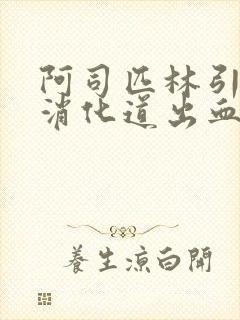 阿司匹林引
消化道出血
養生涼白開